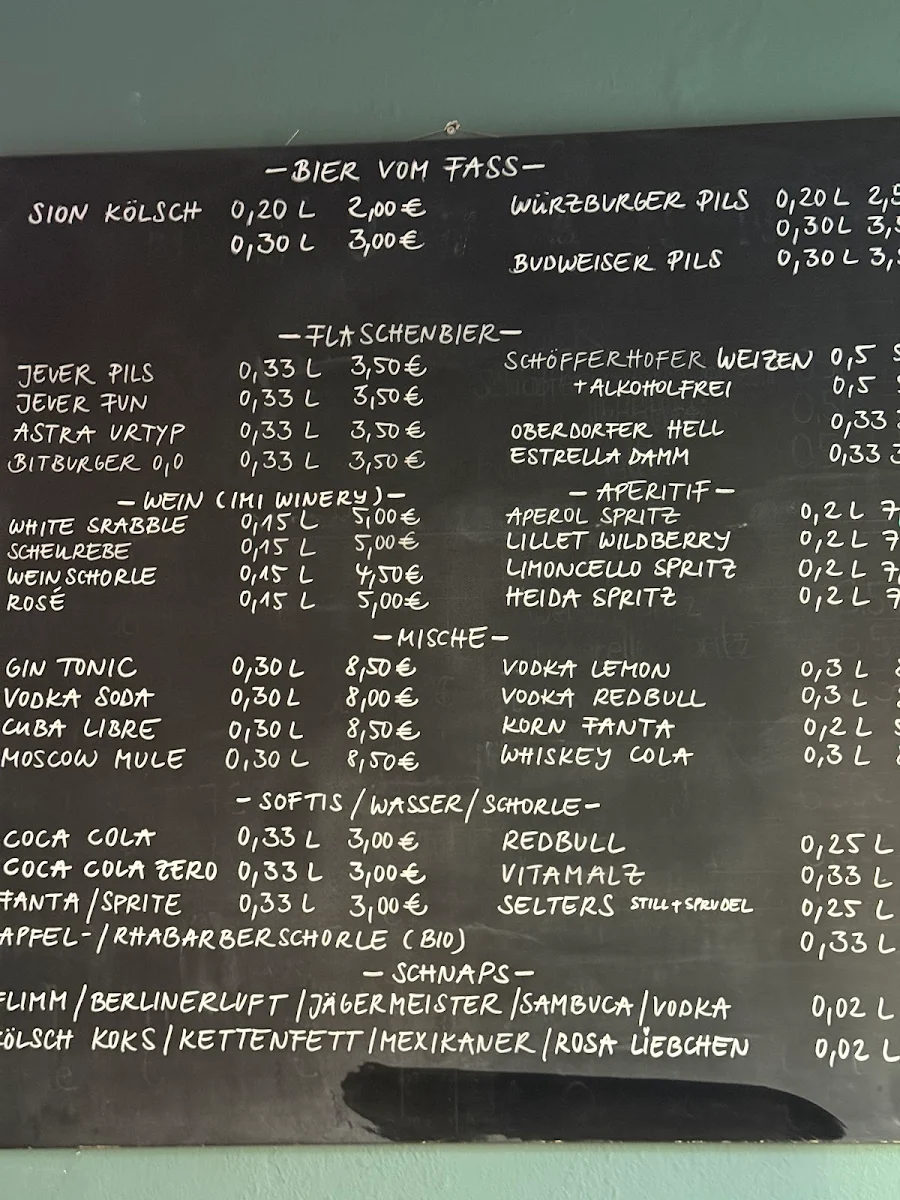 -BIER VOM FASS-
SION KÖLSCH 0,20 L 2,00 € WÜRZBURGER PILS 0,20 L 2,5
0,30 L 3,00 € 0,30 L 3,5
BUDWEISER PILS 0,30 L 3,
-FLASCHENBIER-
JEVER PILS 0,33 L 3,50 € SCHÖFFERHOFER WEIZEN 0,5
JEVER FUN 0,33 L 3,50 € +ALKOHOLFREI 0,5
ASTRA URTYP 0,33 L 3,50 € OBERDORFER HELL 0,33
BITBURGER 0,0 0,33 L 3,50 € ESTRELLA DAMM 0,33
-WEIN (IMI WINERY)- -APERITIF-
WHITE SRABBLE 0,15 L 5,00 € APEROL SPRITZ 0,2 L 7
SCHEUREBE 0,15 L 5,00 € LILLET WILDBERRY 0,2 L 7
WEINSCHORLE 0,15 L 4,50 € LIMONCELLO SPRITZ 0,2 L 7,
ROSÉ 0,15 L 5,00 € HEIDA SPRITZ 0,2 L 7
-MISCHE-
GIN TONIC 0,30 L 8,50 € VODKA LEMON 0,3 L
VODKA SODA 0,30 L 8,00 € VODKA REDBULL 0,3 L
CUBA LIBRE 0,30 L 8,50 € KORN FANTA 0,2 L
MOSCOW MULE 0,30 L 8,50 € WHISKEY COLA 0,3 L
-SOFTIS/WASSER/SCHORLE-
COCA COLA 0,33 L 3,00 € REDBULL 0,25 L
COCA COLA ZERO 0,33 L 3,00 € VITAMALZ 0,33 L
FANTA/SPRITE 0,33 L 3,00 € SELTERS STILL+SPRUDEL 0,25 L
APFEL-/RHABARBERSCHORLE (BIO) 0,33 L
-SCHNAPS-
FLIMM/BERLINERLUFT/JÄGERMEISTER/SAMBUCA/VODKA 0,02 L
KÖLSCH KOKS/KETTENFETT/MEXIKANER/ROSA LIEBCHEN 0,02 L